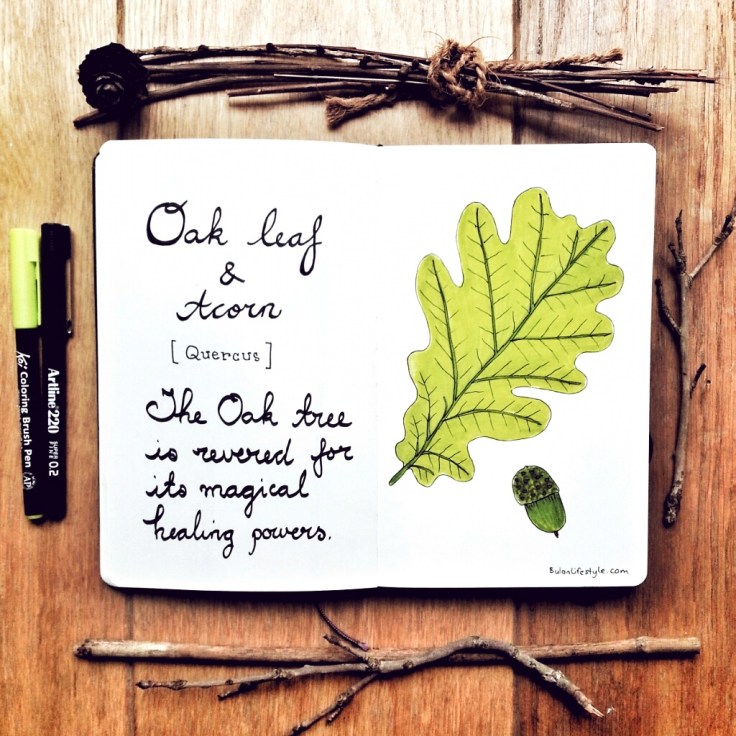 Oak leaf
&
Acorn
[Quercus]
The Oak tree
is revered for
its magical
healing powers.
BulanLifestyle.com
Koi Coloring Brush Pen (AP)
Artline 220 SUPER FINE 0.2